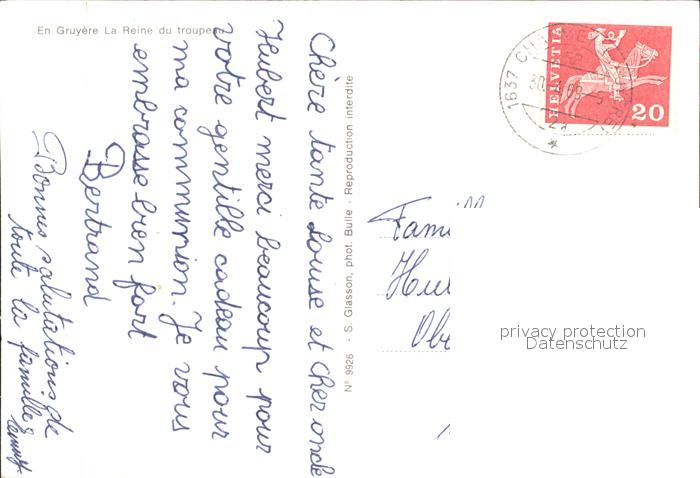 En Gruyère La Reine du troupeau
Chère tante Louise et cher oncle
Hubert merci beaucoup pour
votre gentille cadeau pour
ma communion. Je vous
embrasse bien fort
Bertrand
Bonnes salutations de
toute la famille
N° 9926 - S. Glasson, phot. Bulle - Reproduction interdite
HELVETIA
20
1637 CHARMEY
30.
69-5
Fami
Hu
Obe
privacy protection
Datenschutz